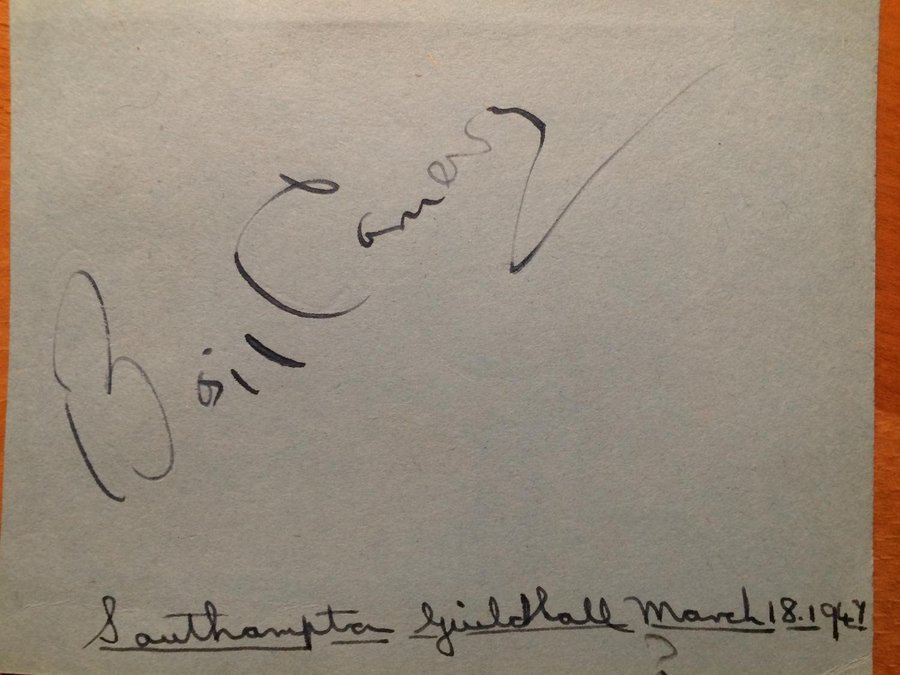 Basil Cameron
Southampton Guildhall March 18.1947
?